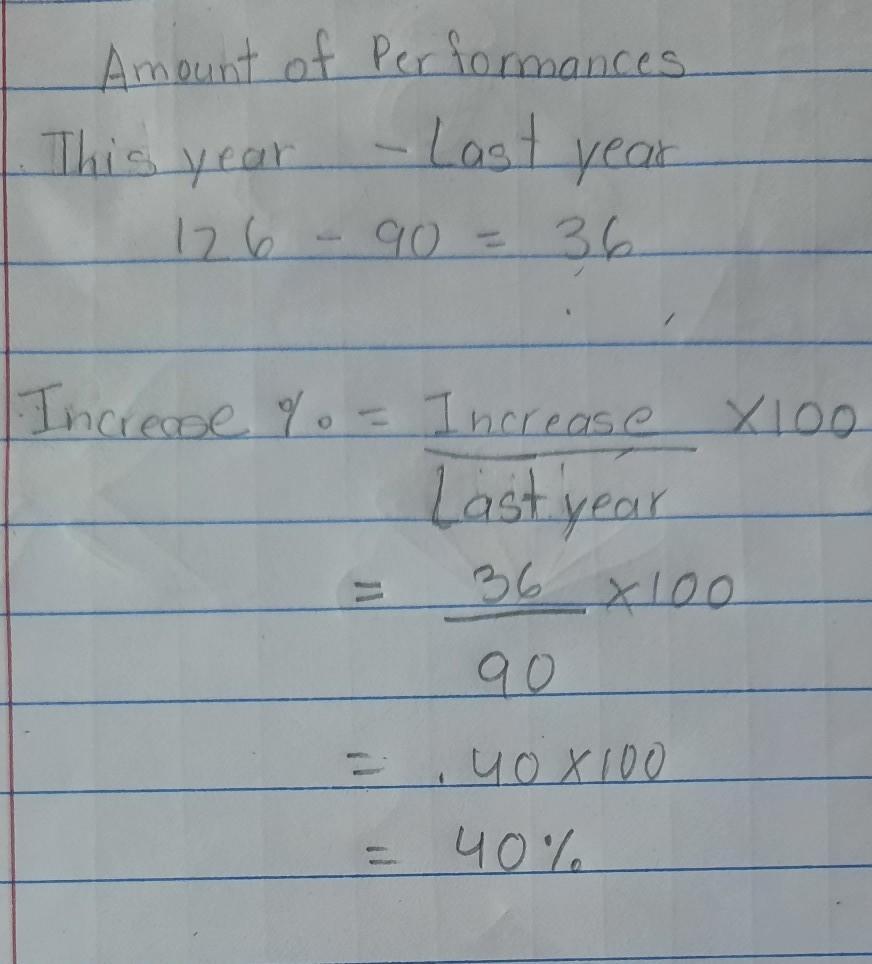 Amount of Performances
This year - Last year
126 - 90 = 36
Increase % = Increase X100
Last year
= 36 X100
90
= .40 X100
= 40%